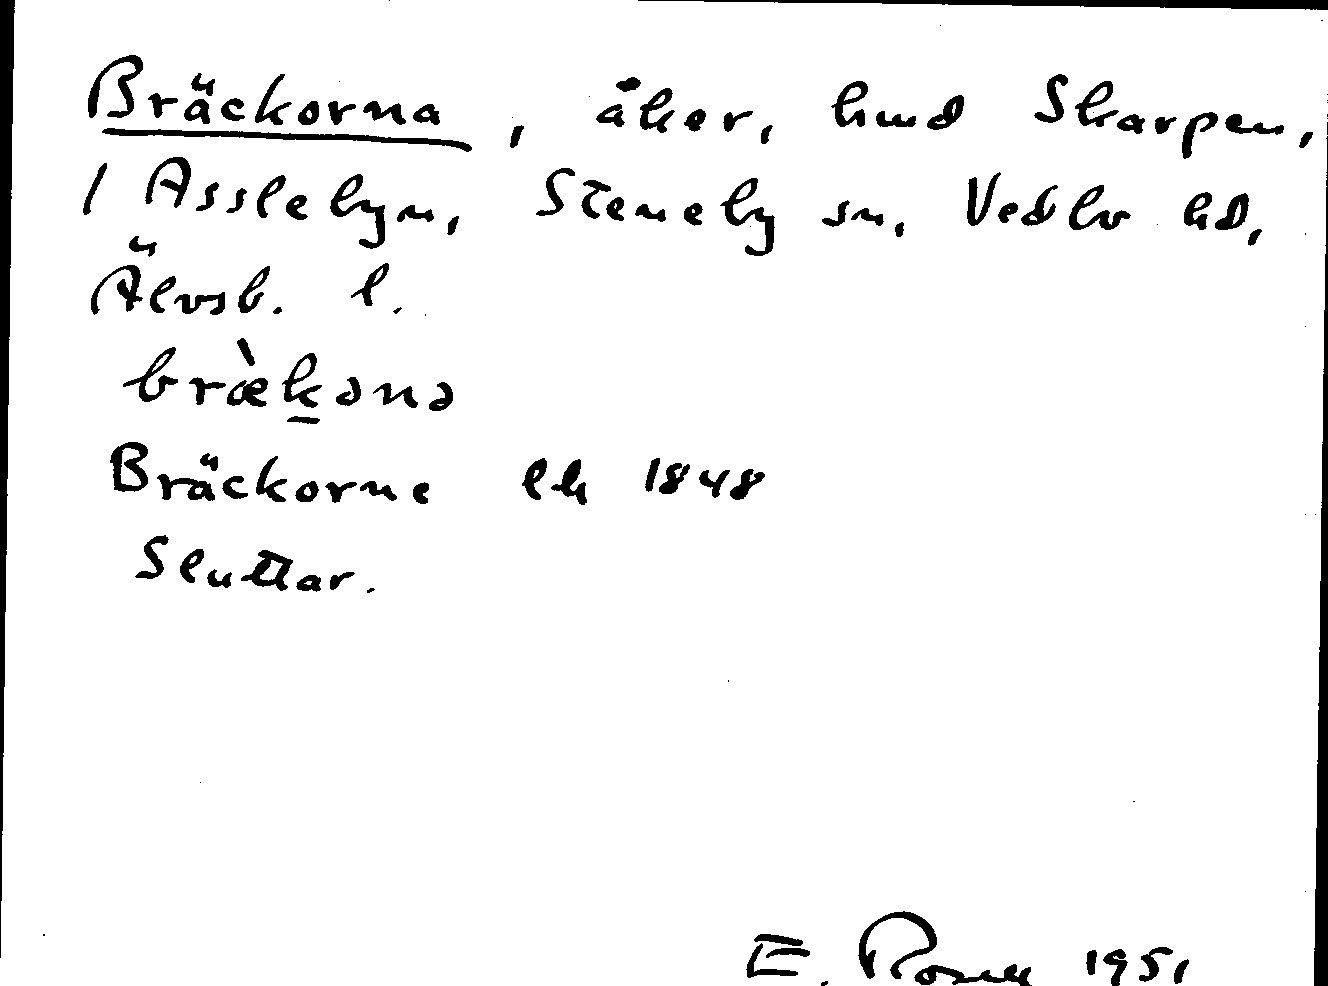 Bräckorna, åker, hmd Skarpen,
1 Asslebyn, Steneby sn, Vedbo hd,
Älvsb. l.
bràekənə
Bräckorne lh 1848
Sluttar.
E. Rosell 1951